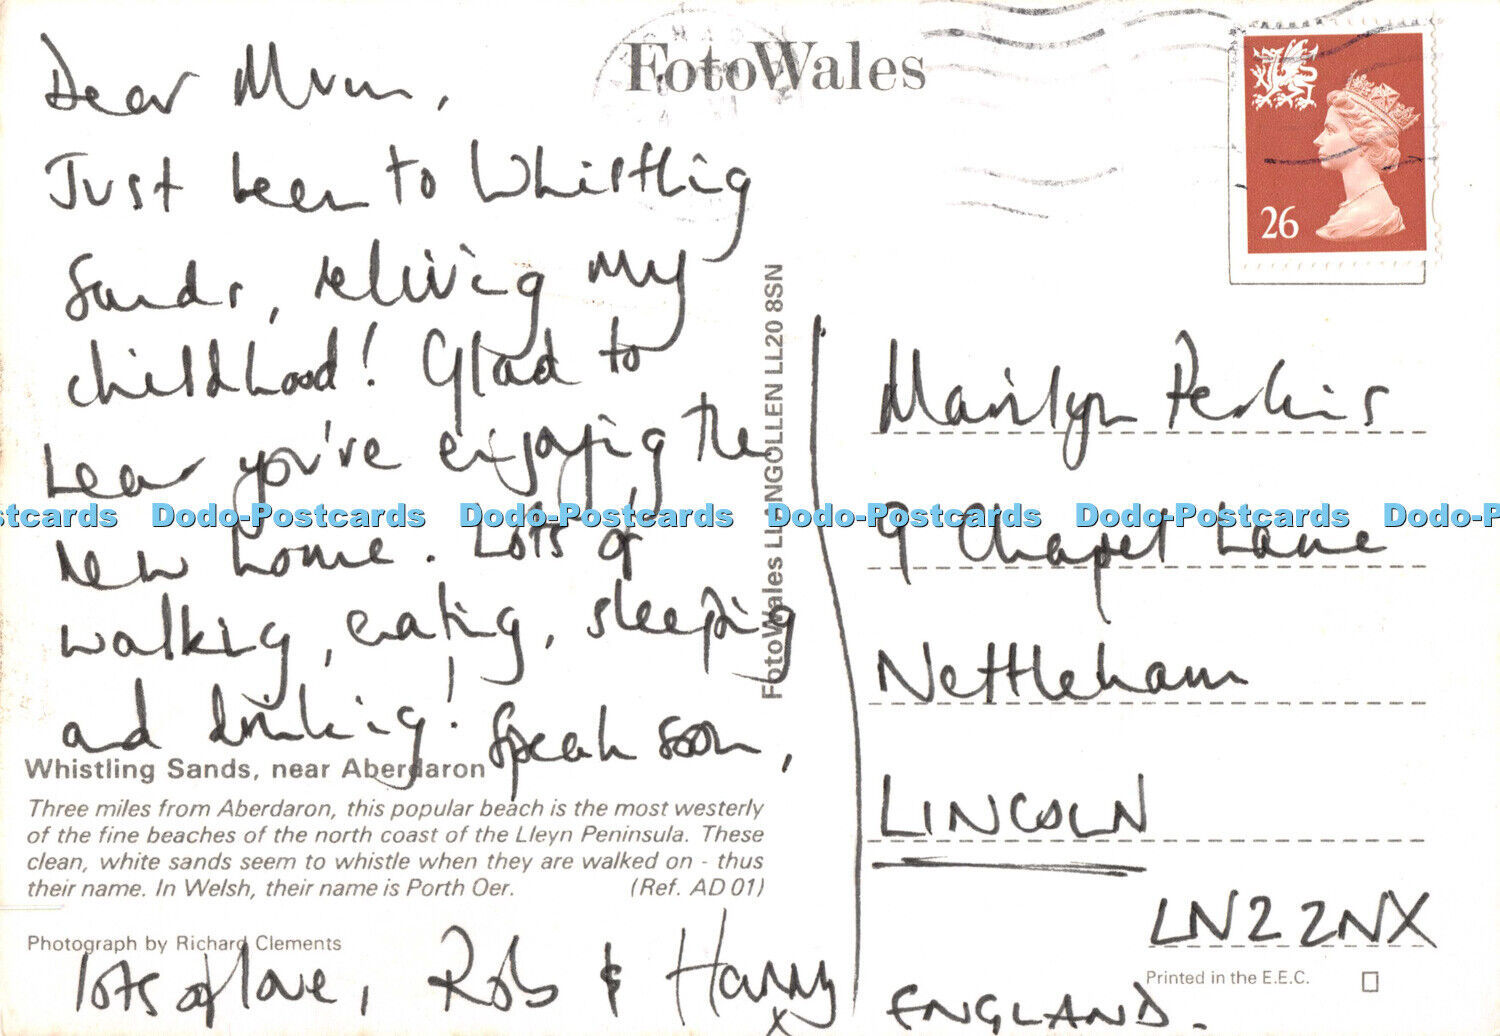 FotoWales
26
Dear Mum,
Just been to Whistling
Sands, reliving my
childhood! Glad to
hear you've enjoying the
new home. Lots of
walking, eating, sleeping
and drinking! Speak soon,
Whistling Sands, near Aberdaron
Three miles from Aberdaron, this popular beach is the most westerly
of the fine beaches of the north coast of the Lleyn Peninsula. These
clean, white sands seem to whistle when they are walked on - thus
their name. In Welsh, their name is Porth Oer. (Ref. AD 01)
Photograph by Richard Clements
lots of love, Rob & Harry
x
FotoWales LLANGOLLEN LL20 8SN
Marilyn Perkins
9 Chapel Lane
Nettleham
LINCOLN
LN2 2NX
Printed in the E.E.C.
ENGLAND.
stcards Dodo-Postcards Dodo-Postcards Dodo-Postcards Dodo-Postcards Dodo-P